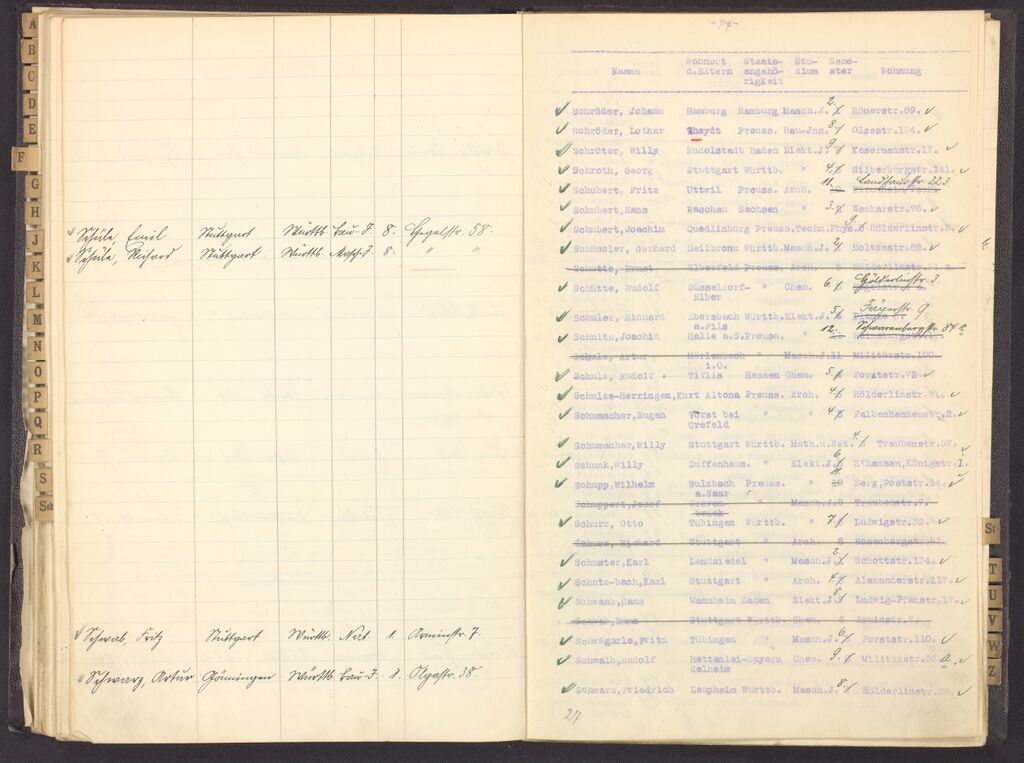 A
B
C
D
E
F
G
H
J
K
L
M
N
O
P
Q
R
S
Sch
Schüle, Emil Stuttgart Württb. Bau-I. 8. Hegelstr. 58.
Schüle, Richard Stuttgart Württb. Masch.I. 8. " "
Schwab, Fritz Stuttgart Württb. Nat. 1. Arminstr. 7.
Schwarz, Artur Gönningen Württb. Bau-I. 1. Olgastr. 38.
-74-
Namen Wohnort d.Eltern Staatsangehörigkeit Studium Semester Wohnung
Schröder, Johann Hamburg Hamburg Masch.J. 2. Römerstr.89.
Schröder, Lothar Rheydt Preuss. Bau-Jng. 8. Olgastr.134.
Schröter, Willy Rudolstadt Baden Elekt.J. 9. Kasernenstr.17.
Schroth, Georg Stuttgart Württb. " 4. Silberburgstr.141.
Schubert, Fritz Uttwil Preuss. Arch. 11. Landhausstr. 223
Schubert, Hans Raschau Sachsen " 3. Neckarstr.76.
Schubert, Joachim Quedlinburg Preuss. Techn.Phys. 9. Hölderlinstr.
Schüssler, Gerhard Heilbronn Württb. Masch.J. 2. Moltkestr.62.
Schütte, Ernst Elberfeld Preuss. Arch. 8 Hölderlinstr.
Schütte, Rudolf Düsseldorf- " Chem. 6. Hölderlinstr. 3.
Elber
Schuler, Richard Ebersbach Württb. Elekt.J. 5. Jägerstr. 9
a.Fils
Schultz, Joachim Halle a.S. Preuss. " 12. Schwarenbergstr. 84
Schulz, Artur Mörlenbach " Masch.J. 11 Militärstr.100.
i.O.
Schulz, Rudolf Tiflis Hessen Chem. 5. Forststr.72.
Schulze-Herringen, Kurt Altona Preuss. Arch. 4. Hölderlinstr.
Schumacher, Eugen Vorst bei " " 4. Falbenhennenstr.2.
Crefeld
Schumacher, Willy Stuttgart Württb. Math.u.Nat. 4. Traubenstr.57.
Schunk, Willy Zuffenhaus. " Elekt.J. 6. Z'hausen, Königstr.1.
Schupp, Wilhelm Sulzbach Preuss. " 11. Berg, Poststr.14.
a.Saar
Schuppert, Josef Greven- " Masch.J. 8 Traubenstr.7.
brück
Schurr, Otto Tübingen Württb. " 7. Ludwigstr.32.
Schurr, Richard Stuttgart " Arch. 8 Rosenbergstr.
Schuster, Karl Lendsiedel " Masch.J. 2. Schottstr.
Schutz-bach, Karl Stuttgart " Arch. 4. Alexanderstr.117.
Schwaab, Hans Mannheim Baden Elekt.J. 8. Ludwig-Pfau-str.
Schwab, Emma Stuttgart Württb. Chem. 6
Schwägerle, Fritz Tübingen " Masch.J. 6. Forststr.110.
Schwalb, Rudolf Hettenlei- Bayern Chem. 9. Militärstr.
delheim
Schwarz, Friedrich Laupheim Württb. Masch.J. 8. Hölderlinstr.
27
St
T
U
V
W
Z